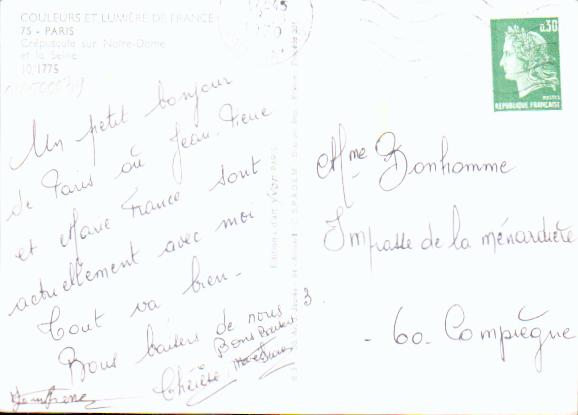 COULEURS ET LUMIÈRE DE FRANCE
75 - PARIS
Crépuscule sur Notre-Dame
et la Seine
10/1775
Un petit bonjour
de Paris où Jean-Pierre
et Marie France sont
actuellement avec moi
Tout va bien -
Bons baisers de nous
Bons Baisers
Thérèse
Editions d'art YVON PARIS
0,30
POSTES
REPUBLIQUE FRANÇAISE
Mme Bonhomme
3. Impasse de la ménardière
- 60. Compiègne